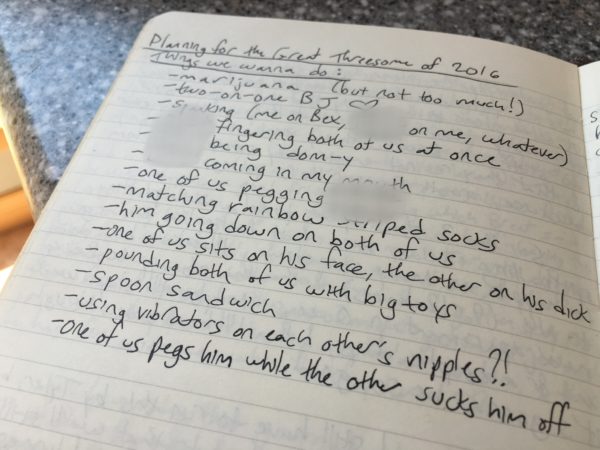 Planning for the Great Threesome of 2016
Things we wanna do:
-marijuana (but not too much!)
-two-on-one BJ ♡
-spanking (me on Bex, on me, whatever)
- fingering both of us at once
- being dom-y
- coming in my mouth
-one of us pegging
-matching rainbow striped socks
-him going down on both of us
-one of us sits on his face, the other on his dick
-pounding both of us with big toys
-spoon sandwich
-using vibrators on each other's nipples?!
-one of us pegs him while the other sucks him off